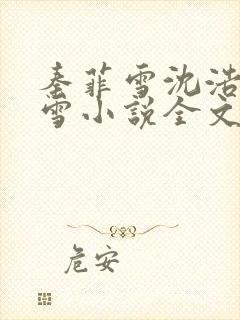 秦菲雪沈浩
雪小说全文
危安